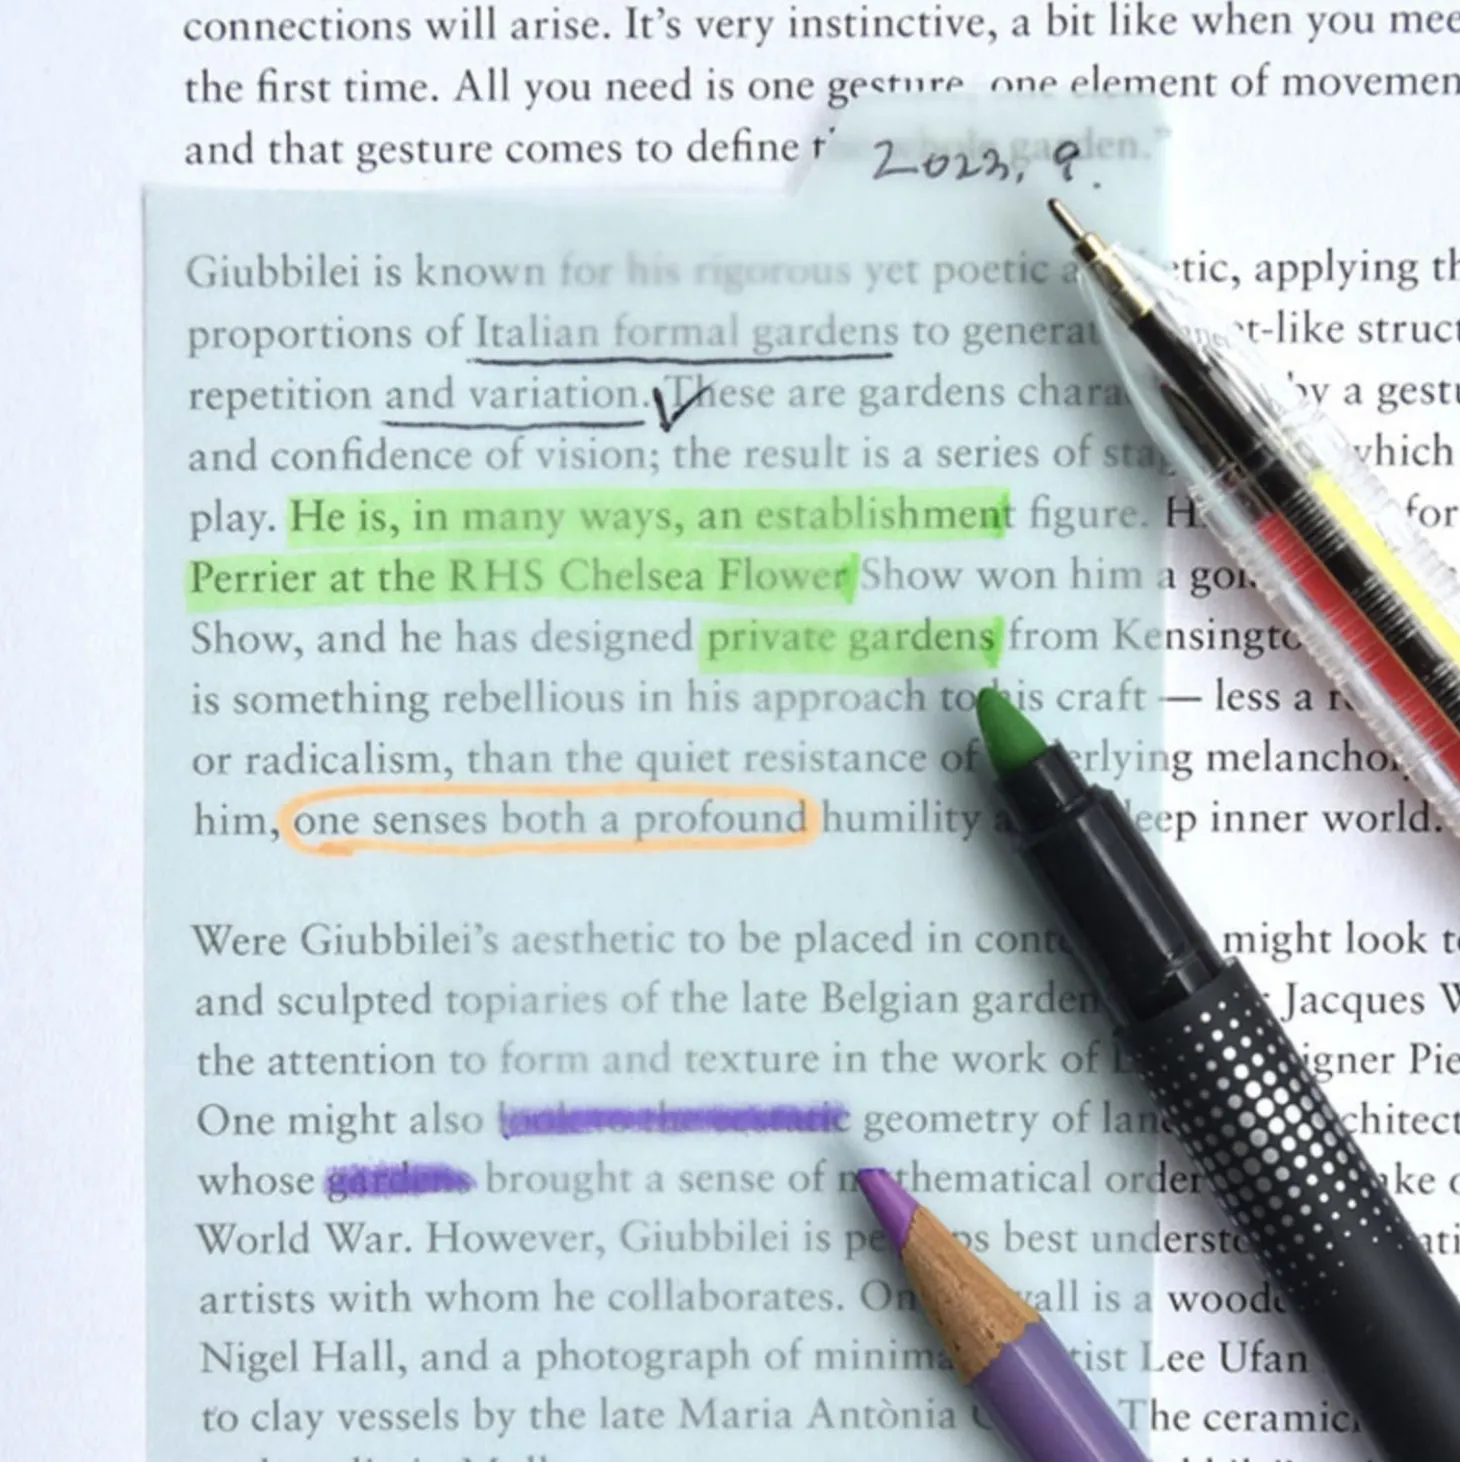 connections will arise. It's very instinctive, a bit like when you mee
the first time. All you need is one gesture, one element of movemen
and that gesture comes to define whole garden."
2023, 9.
Giubbilei is known for his rigorous yet poetic etic, applying th
proportions of Italian formal gardens to generat t-like struct
repetition and variation. These are gardens chara by a gestu
and confidence of vision; the result is a series of sta which
play. He is, in many ways, an establishment figure. H for
Perrier at the RHS Chelsea Flower Show won him a gol
Show, and he has designed private gardens from Kensingto
is something rebellious in his approach to his craft — less a r
or radicalism, than the quiet resistance of erlying melancho
him, one senses both a profound humility eep inner world.
Were Giubbilei's aesthetic to be placed in cont might look t
and sculpted topiaries of the late Belgian garden Jacques W
the attention to form and texture in the work of igner Pie
One might also look to the ecstatic geometry of lan chitect
whose gardens brought a sense of mathematical order ke o
World War. However, Giubbilei is pe ps best understo ati
artists with whom he collaborates. On wall is a woode
Nigel Hall, and a photograph of minima tist Lee Ufan
to clay vessels by the late Maria Antònia The ceramic